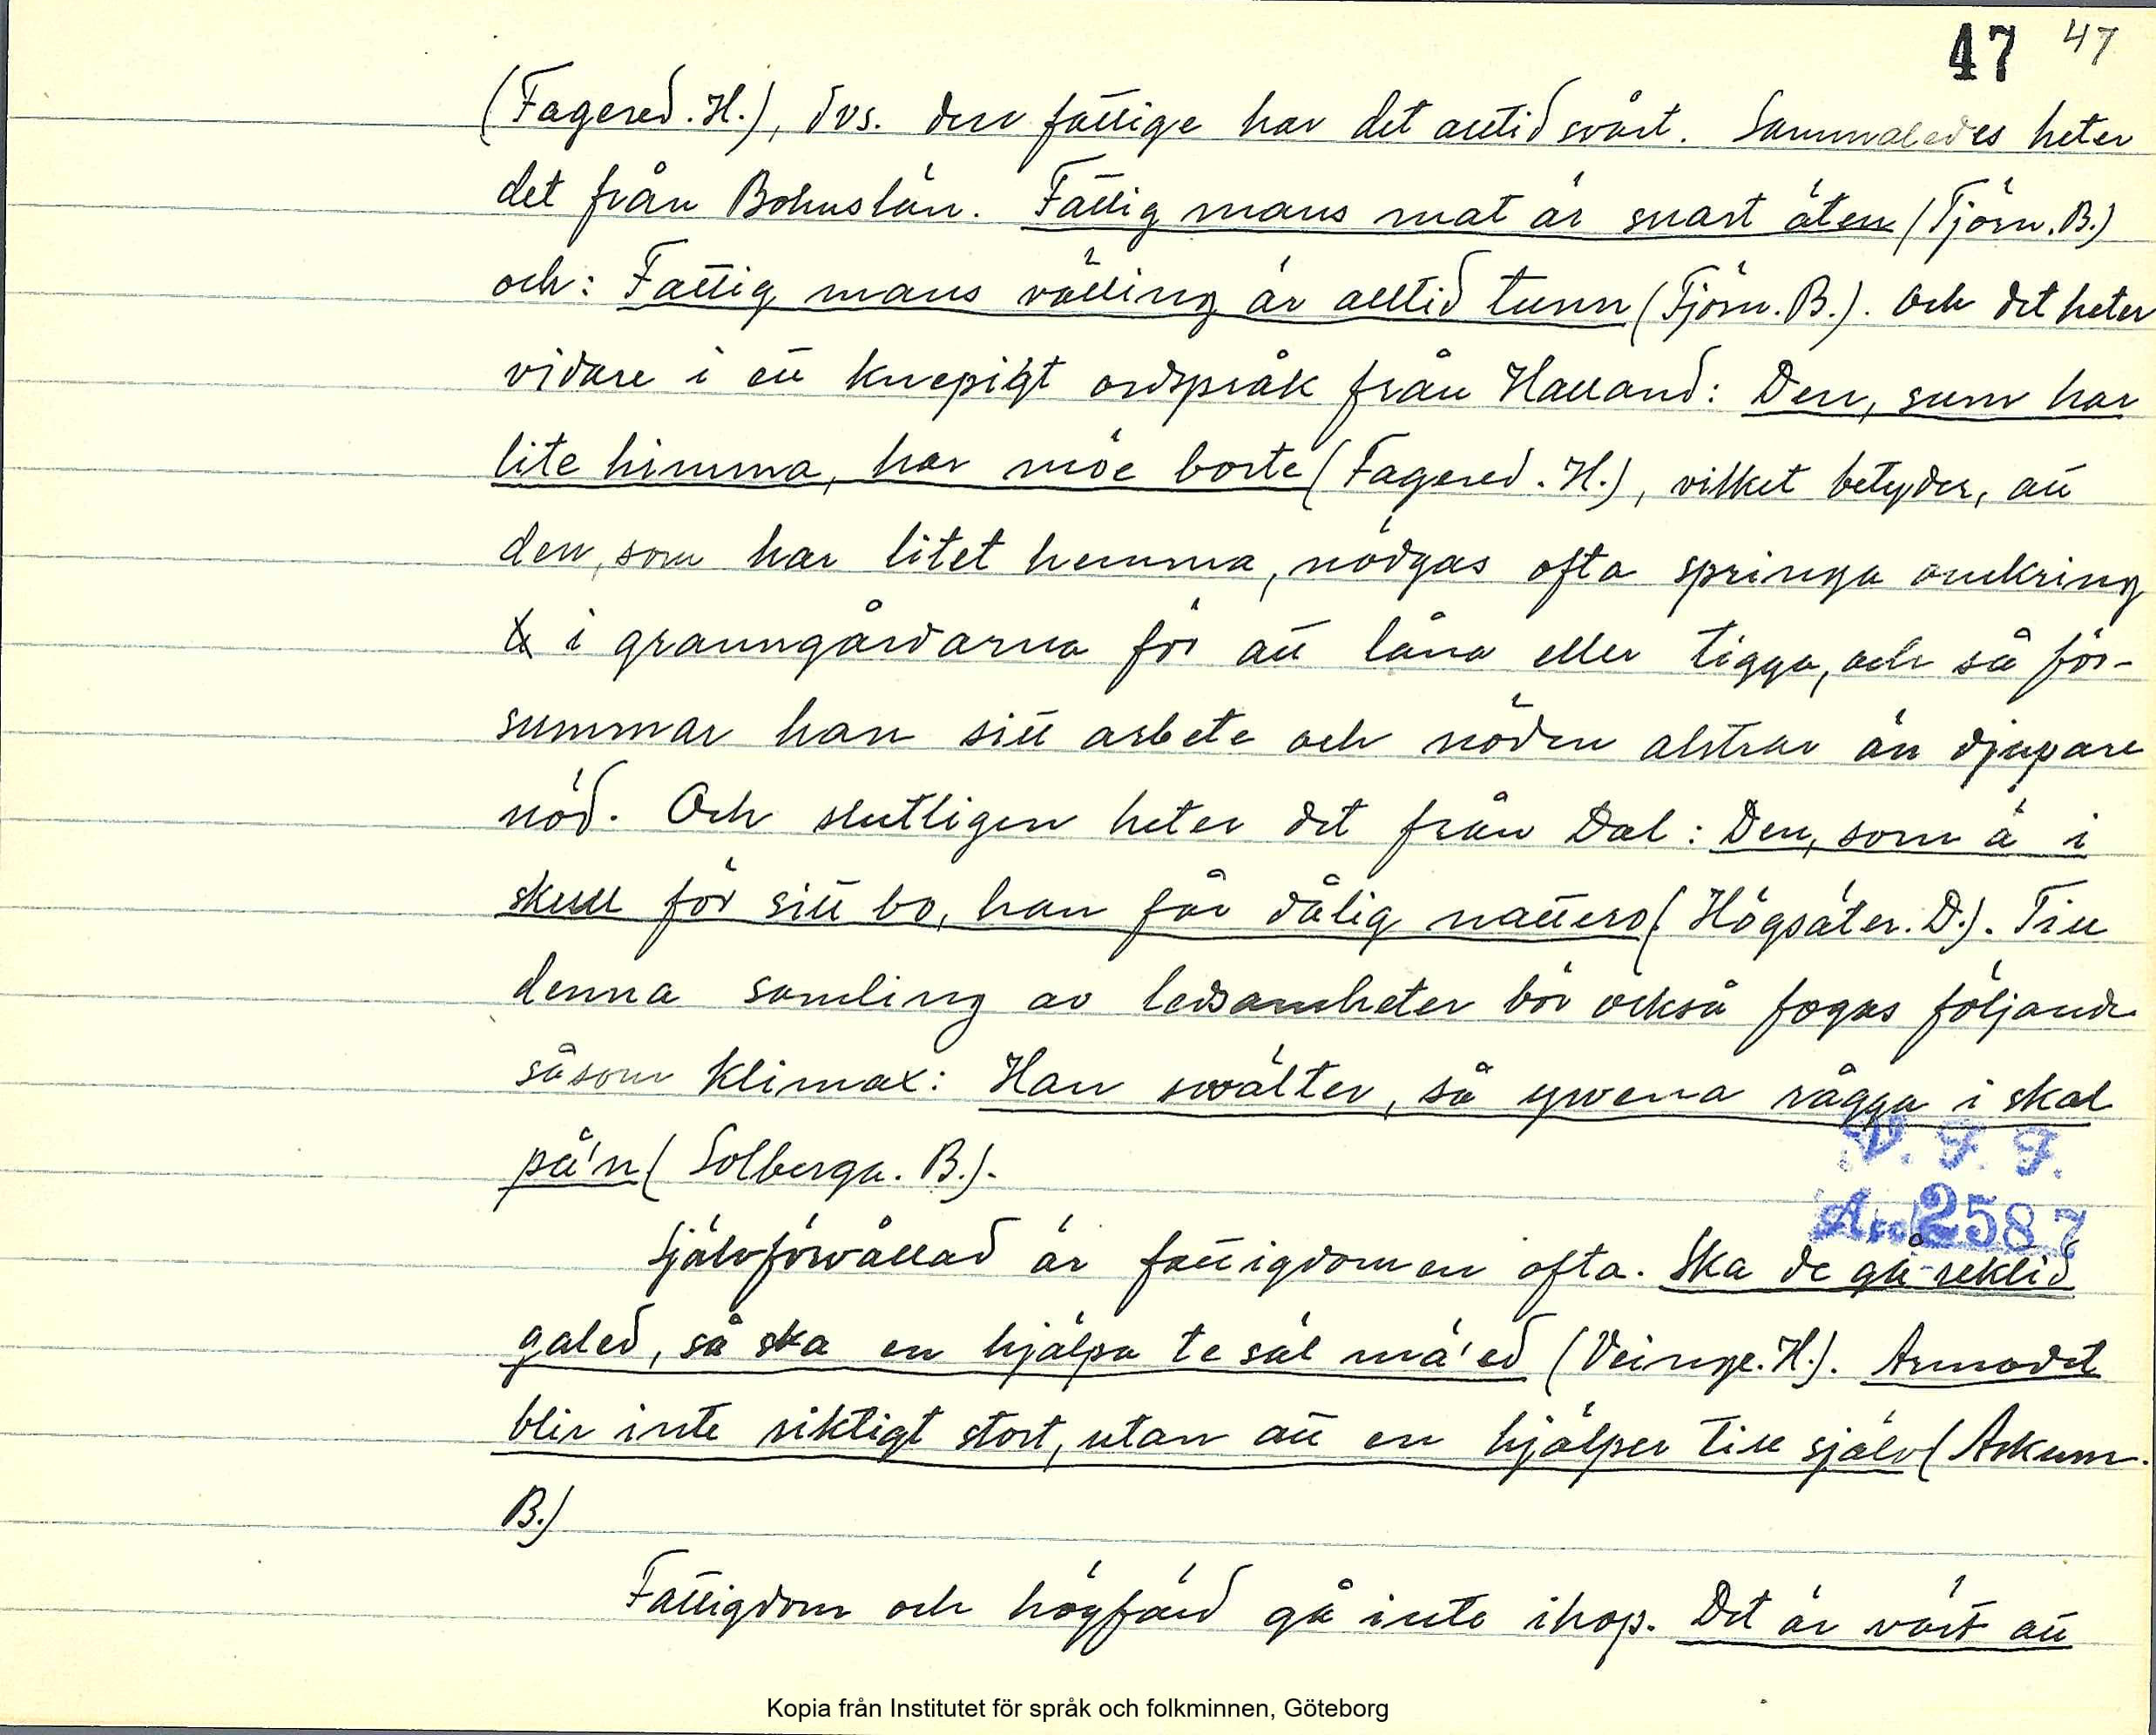 47 47
(Fagered. H.), dvs. den fattige har det alltid svårt. Sammaledes heter
det från Bohuslän. Fattig mans mat är snart äten (Tjörn. B.)
och: Fattig mans välling är alltid tunn (Tjörn. B.). Och det heter
vidare i ett knepigt ordspråk från Halland: Den, sum har
lite himma, har möe borte (Fagered. H.), vilket betyder, att
den, som har litet hemma, nödgas ofta springa omkring
i granngårdarna för att låna eller tigga, och så för-
summar han sitt arbete och nöden alstrar än djupare
nöd. Och slutligen heter det från Dal: Den, som ä i
skull för sitt bo, han får dålig nattero (Högsäter. D.). Till
denna samling av ledsamheter bör också fogas följande
såsom klimax: Han svälter, så yvena rågga i skal
på'n (Solberga. B.).
V. F. F.
Acc 2587
Självförvållad är fattigdomen ofta. Ska de gå reklid
galed, så ska en hjälpa te säl mä'ed (Veinge. H.). Armodet
blir inte riktigt stort, utan att en hjälper till själv (Askum.
B.)
Fattigdom och högfärd gå inte ihop. Det är värt att
Kopia från Institutet för språk och folkminnen, Göteborg